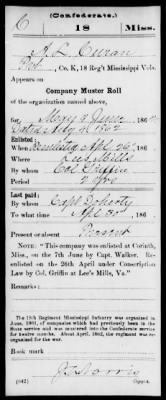 (Confederate.)
C 18 Miss.
A. L. Curan
Pvt, Co. K, 18 Reg't Mississippi Vols.
Appears on
Company Muster Roll
of the organization named above,
for May & June, 186
Dated July 4 1862
Enlisted:
When Apl 26, 186
Where Lees Mills
By whom Col Griffin
Period 2 yrs
Last paid:
By whom Capt Doherty
To what time Apl 30, 186
Present or absent Present
Remarks: "This company was enlisted at Corinth,
Miss., on the 7th June by Capt. Walker. Re-
enlisted on the 26th April under Conscription
Law by Col. Griffin at Lee's Mills, Va."
The 18th Regiment Mississippi Infantry was organized in
June, 1861, of companies which had previously been in the
State service and was mustered into the Confederate service
for twelve months. About April, 1862, the regiment was re-
organized for the war.
Book mark
(642) Copyist.